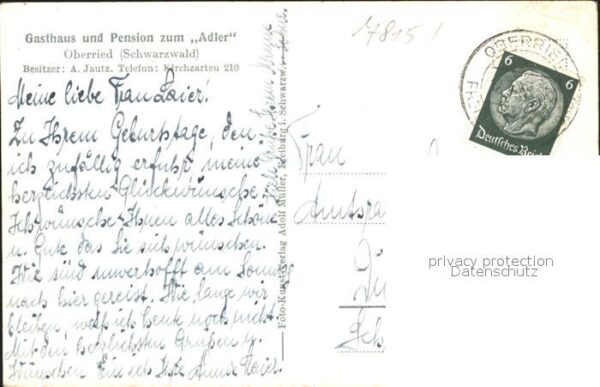 Gasthaus und Pension zum „Adler"
Oberried (Schwarzwald)
Besitzer: A. Jautz. Telefon: Kirchzarten 210
Meine liebe Frau Maier!
Zu Ihrem Geburtstage, den
ich zufällig erfuhr meine
herzlichsten Glückwünsche.
Ich wünsche Ihnen alles Schöne
u. Gute das Sie sich wünschen.
Wir sind unverhofft am Sonntag
nach hier gereist. Wie lange wir
bleiben, weiß ich heute noch nicht.
Mit den herzlichsten Grüßen u.
Wünschen bin ich Ihre Annie Maier.
Foto-Kunst-Verlag Adolf Müller, Freiburg i. Schwarzw.
7815!
OBERRIED
6 6
Deutsches Reich
Frau
Amtsra
privacy protection
Datenschutz